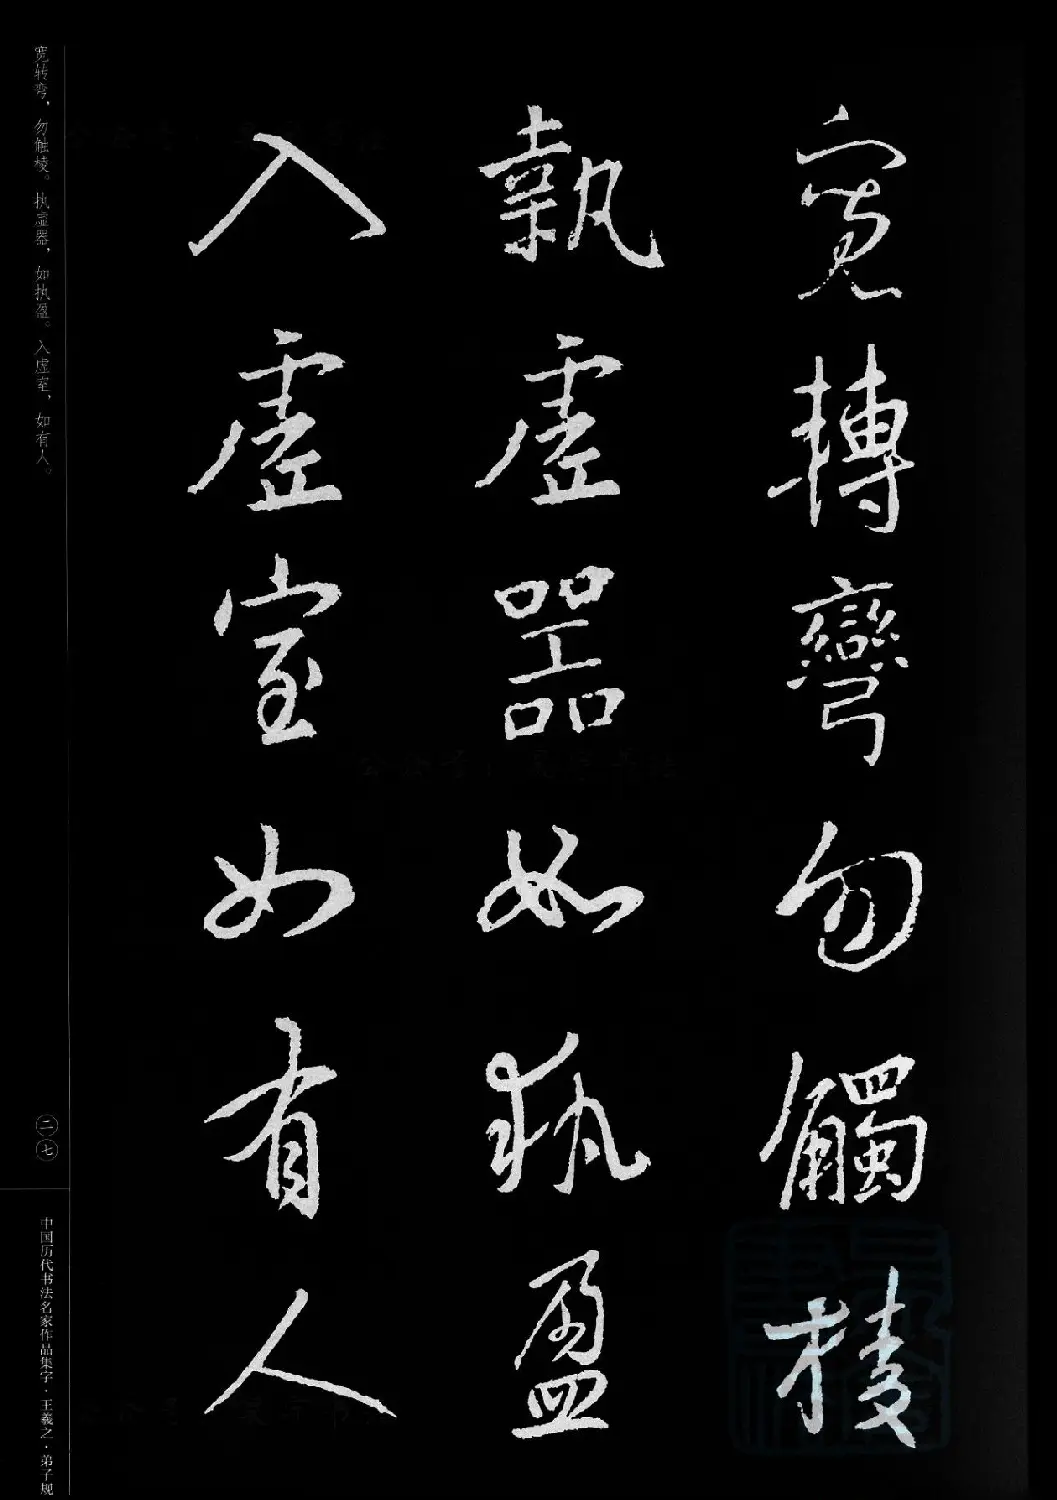 寬轉彎勿觸稜
執虛器如執盈
入虛室如有人
宽转弯，勿触棱。执虚器，如执盈。入虚室，如有人。
二七
中国历代书法名家作品集字·王羲之·弟子规